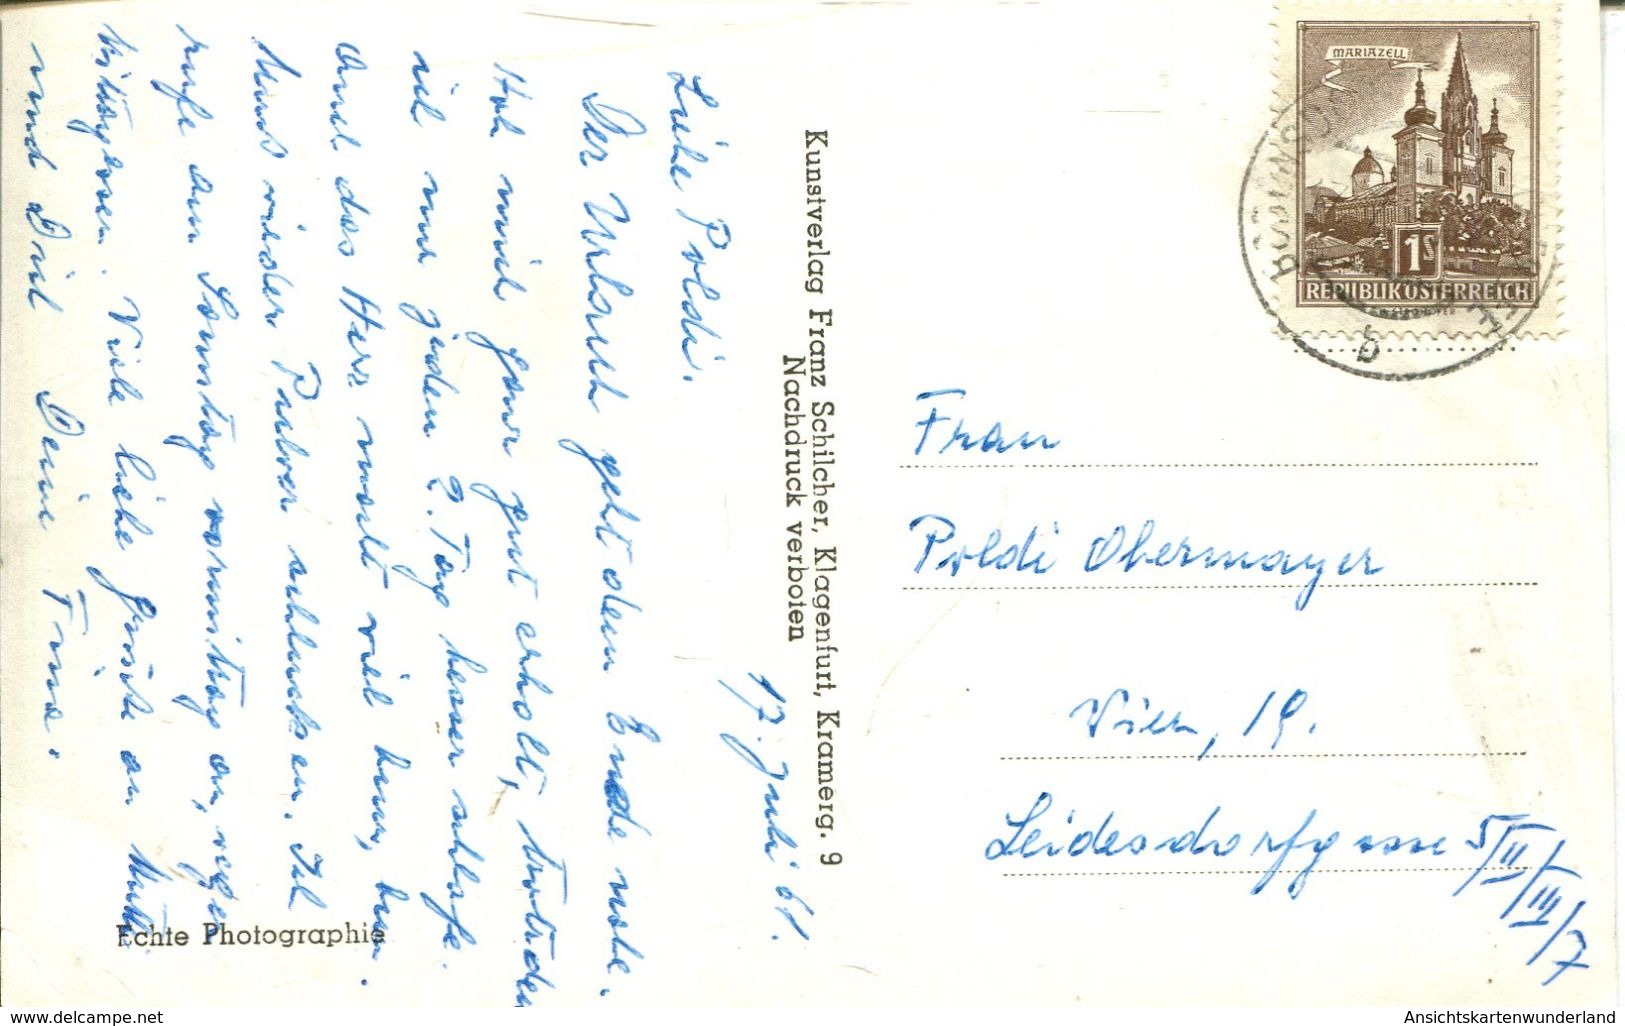 17. Juli 61.
Liebe Poldi.
Der Urlaub geht dem Ende nahe.
Hab mich ganz gut erholt, trotzdem
ich nur jeden 2. Tag besser schlafe.
Auch das Herz macht viel bum, bum.
Muss wieder Pulver schlucken. Ich
rufe am Samstag vormittag an, wegen
Viele liebe Grüsse an Mutti
und Dich Deine Trina.
Kunstverlag Franz Schilcher, Klagenfurt, Kramerg. 9
Nachdruck verboten
Echte Photographie
MARIAZELL
1S
REPUBLIK ÖSTERREICH
Frau
Poldi Obermayer
Wien, 19.
Leidesdorfgasse 5/II/III/7
delcampe.net
Ansichtskartenwunderland